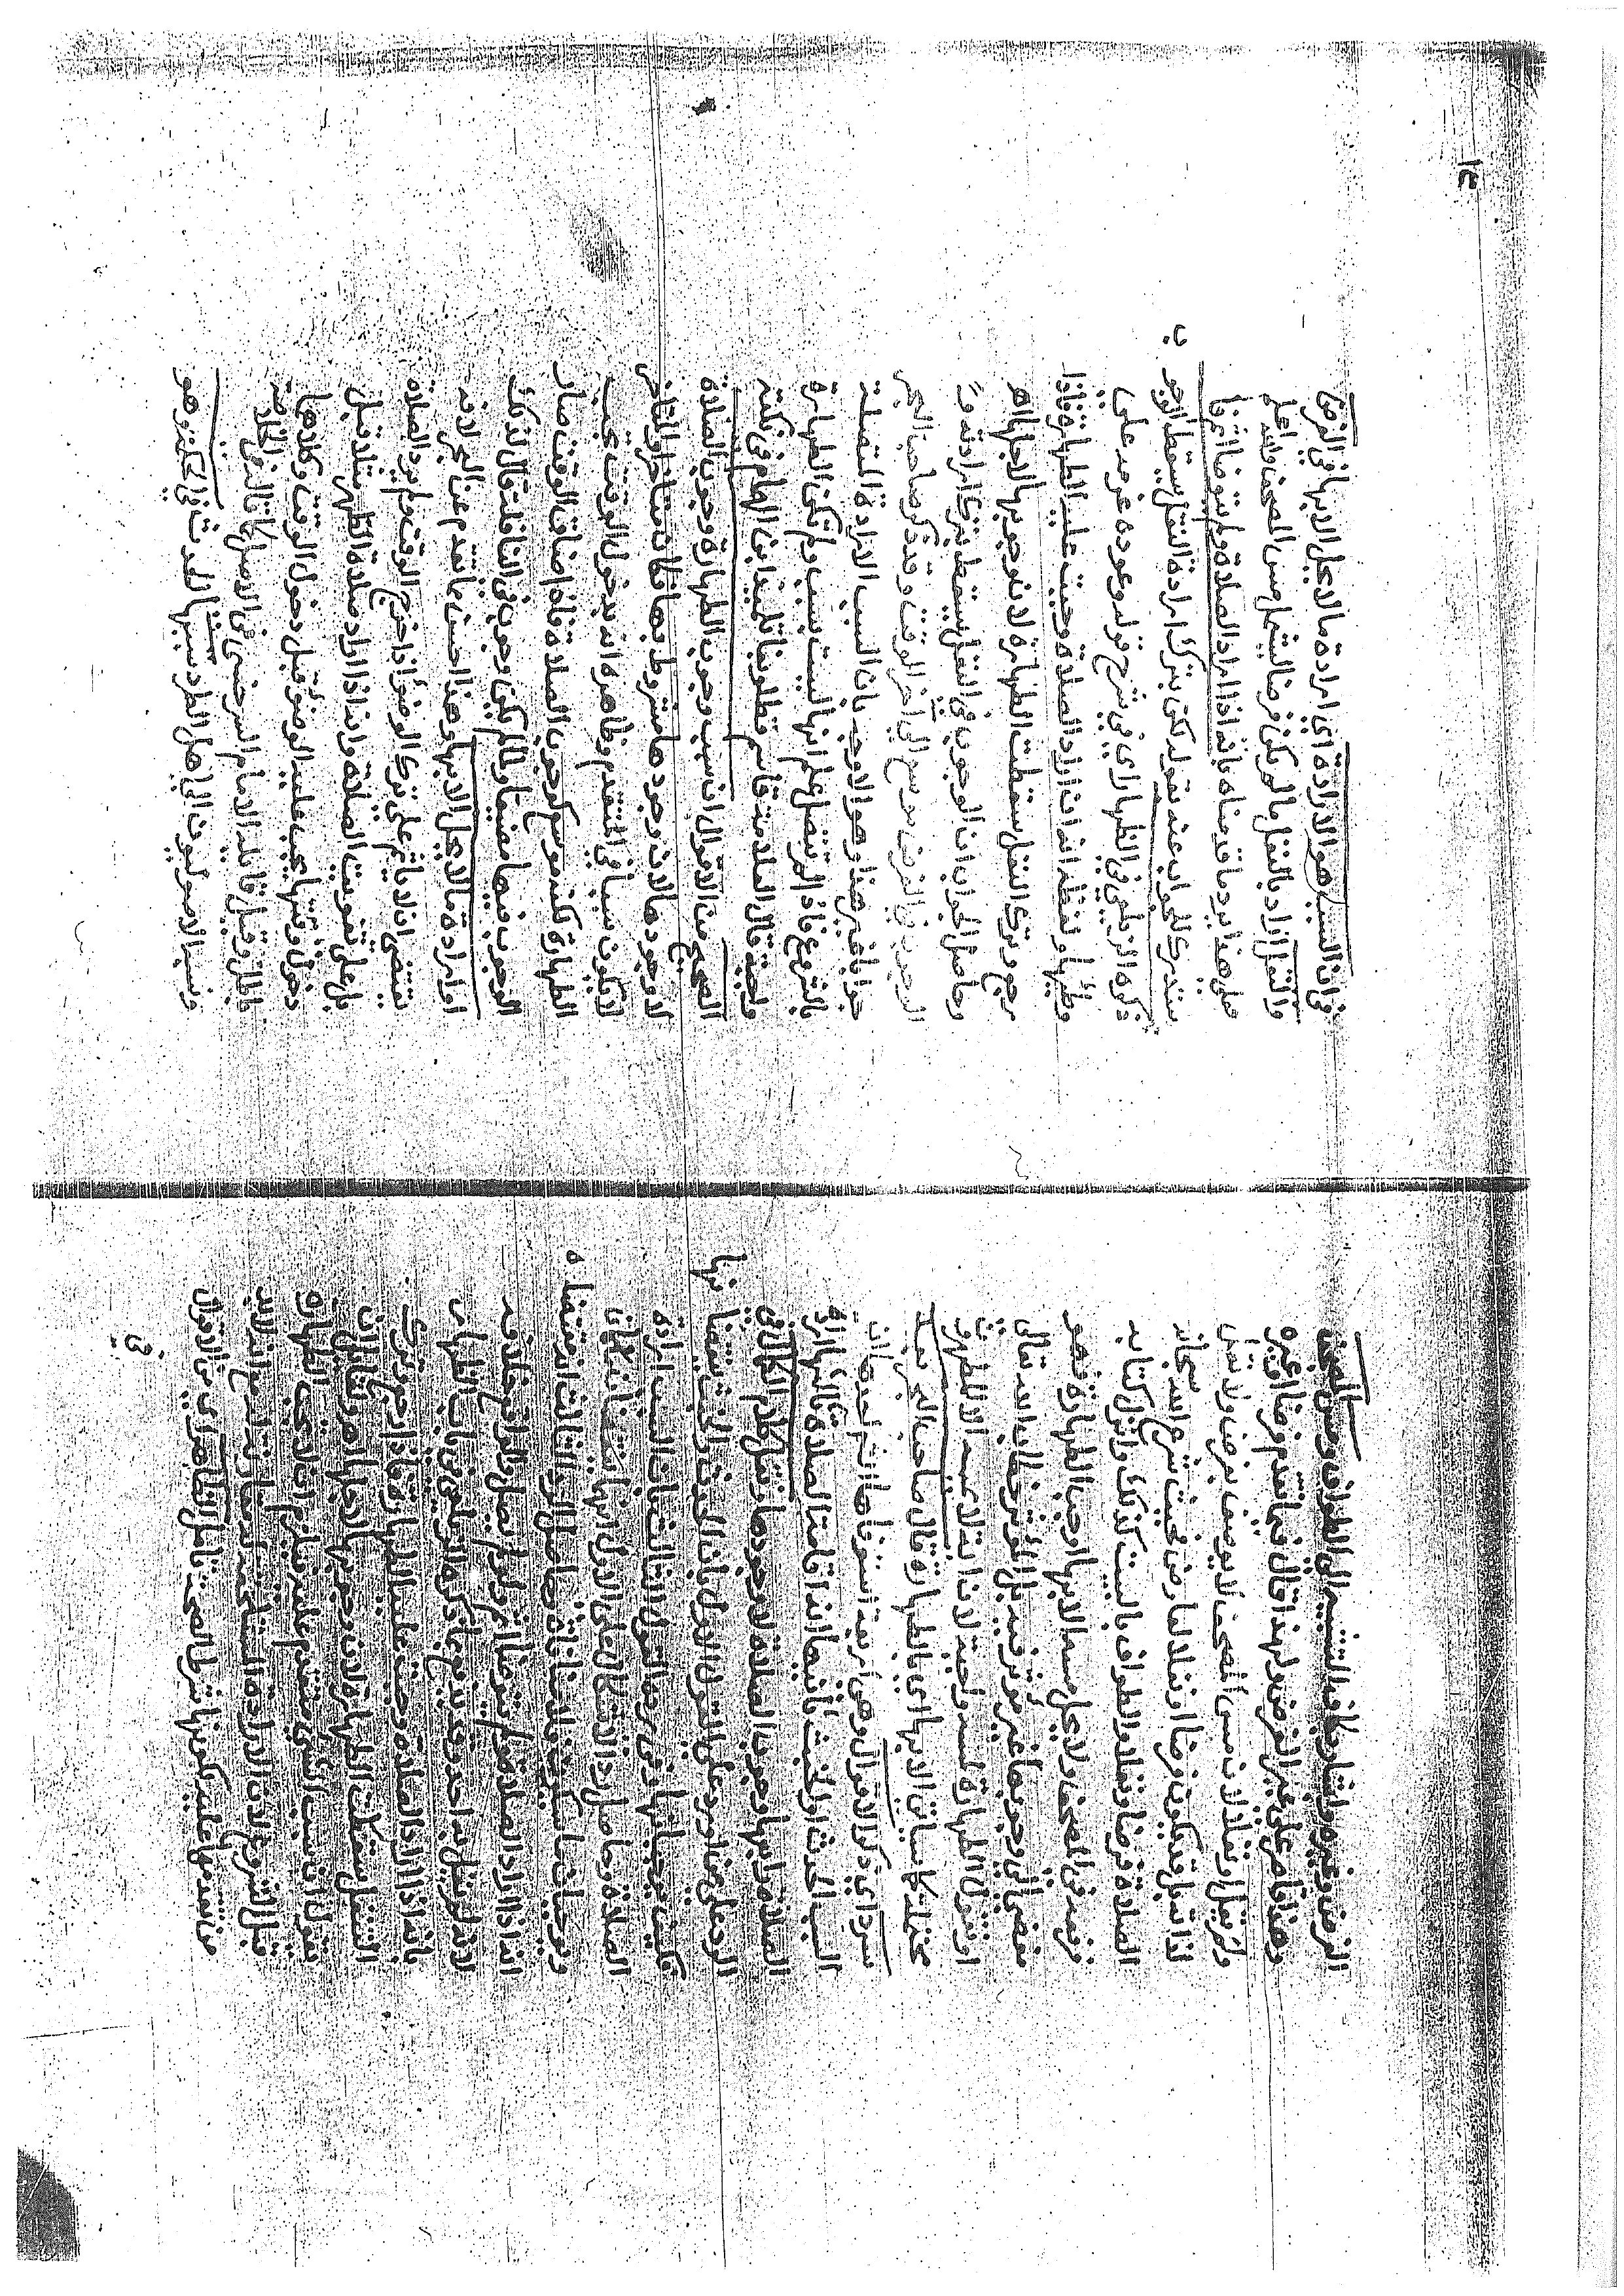 الفرض وغيره واشار بكاف التشبيه الى الطواف ومس المصحف
وهذا قاصر على غير الفرض ولهذا قال فيما تقدم فرضا وغيره
ولم يقل او نفلا لان مس المصحف لا يوصف بفرض ولا نفل
لذاته بل قد يكون فرضا او نفلا لعارض فحيث شرع الله سبحانه
الصلاة فرضا ونفلا والطواف بالبيت كذلك وانزل كتابه
فرقمه في المصحف ولا يحل مسه الا بها اوجب الطهارة فهو
مفض الى وجوبها غير مؤثر فيه بل المؤثر خطاب الله تعالى
او نقول الطهارة لمسه واجبة لان الله تعالى قال لا يمسه الا المطهرون
مختله كما سياتي الا بها اي بالطهارة قال صاحب البحر بعد
سرد اي ذكر الاقوال وهي اربعة استوفاها الشرح احدها ان
السبب الحدث او الخبث ثانيها انه اقامة الصلاة ثالثها ارادة
الصلاة رابعها وجوب الصلاة لا وجودها ونقل كلام الكمال في
الرد على ما اورد على القول الاول بان الحدث والخبث ينقضانها
فكيف يوجبانها وفي رد القول الثاني القائل بان السبب ارادة
الصلاة وحاصل رد الاشكال على الاول انهما ينقضان ما كان
ويوجبان ما سيكون فلا منافاة وحاصل الرد الثاني انه مقتضاه
انه اذا اراد الصلاة ولم يتوضأ اثم ولو لم يصل والواقع خلافه
لانه لم يقل به احد وقد يدفع بما ذكره الزيلعي في باب الظهار
بانه اذا اراد الصلاة وجبت عليه الطهارة فاذا رجع وترك
التنفل سقطت الطهارة لان وجوبها لاجلها اهـ
يقول ان سبب الشيء متقدم عليه فيلزم ان لا تجب الطهارة
قبل الشروع لان الارادة المستلحقة
من تقدمها عليه لكونها شرط الصحة تامل الظاهر اي من الاقوال
في
في ان السبب هو الارادة اي ارادة ما لا يحل الا بها في الفرض
والنفل اراد بالنفل ما لم يكن فرضا ليشمل مس المصحف والله اعلم
على هذا يرد ما قدمناه بانه اذا اراد الصلاة ولم يتوضأ اثم وا
ستدرك للجواب عنه بقوله لكن بترك ارادة النفل يسقط الوجوب
ذكره الزيلعي في الظهار اي في شرح قوله وعوده عزمه على
وطئها ولفظه انه ان اراد الصلاة وجبت عليه الطهارة فاذا
رجع وترك النفل سقطت الطهارة لان وجوبها لاجلها اهـ
وحاصل الجواب ان الوجوب في النفل يسقط بترك ارادته و
الوجوب في الفرض موسع الى اخر الوقت وقد ذكر صاحب البحر
جوابا غير هذا وهو الاوجه بان السبب الارادة المتصلة
بالشروع فاذا لم تتصل علم انها ليست بسبب ولم تكن الطهارة
واجبة قال العلامة قاسم قطلوبغا تلميذ ابن الهمام في نكته
الصحيح من الاقوال ان سبب وجوب الطهارة وجوب الصلاة
لا وجودها لان وجودها مشروط بها فكان متأخرا والمتأخر
لا يكون سببا في المتقدم وظاهره انه بدخول الوقت تجب
الطهارة لكنه موسع كوجوب الصلاة فاذا ضاق الوقت صار
الوجوب فيهما مضيقا ولما لم يكن وجوب في النافلة قال لذلك
او ارادة ما لا يحل الا بها وهذا احسن مما تقدم عن البحر لانه
يقتضي ان لا ياثم على ترك الوضوء اذا خرج الوقت ولم يرد الصلاة
بل على تفويت الصلاة وانه اذا اراد صلاة الظهر مثلا قبل
دخول وقتها يجب عليه الوضوء قبل دخول الوقت وكلاهما
باطل وقيل قائله الامام السرخسي في الاصل كما قال في الخلاصة
ونسبه الاصوليون الى اهل الطرد سببها الحدث في الحكمية وهو